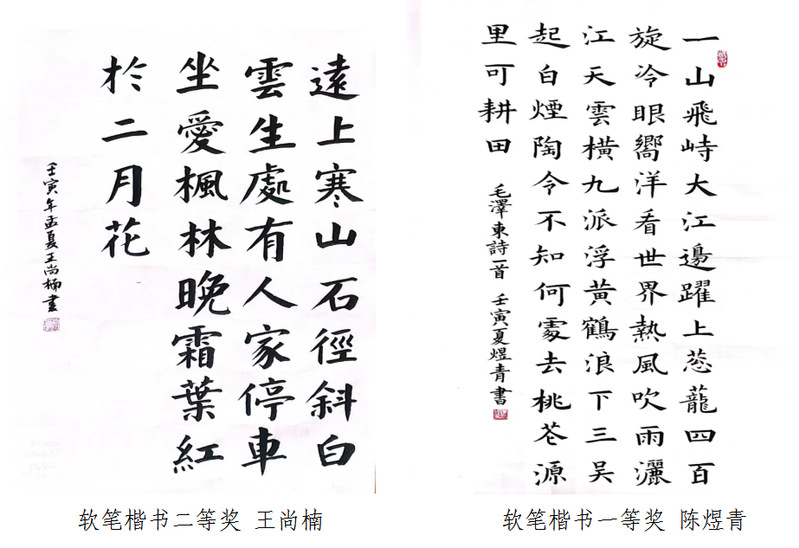 遠上寒山石徑斜白
雲生處有人家停車
坐愛楓林晚霜葉紅
於二月花
壬寅年孟夏王尚楠書
软笔楷书二等奖 王尚楠
一山飛峙大江邊躍上葱蘢四百
旋冷眼嚮洋看世界熱風吹雨灑
江天雲橫九派浮黃鶴浪下三吳
起白煙陶令不知何處去桃花源
里可耕田 毛澤東詩一首 壬寅夏煜青書
软笔楷书一等奖 陈煜青